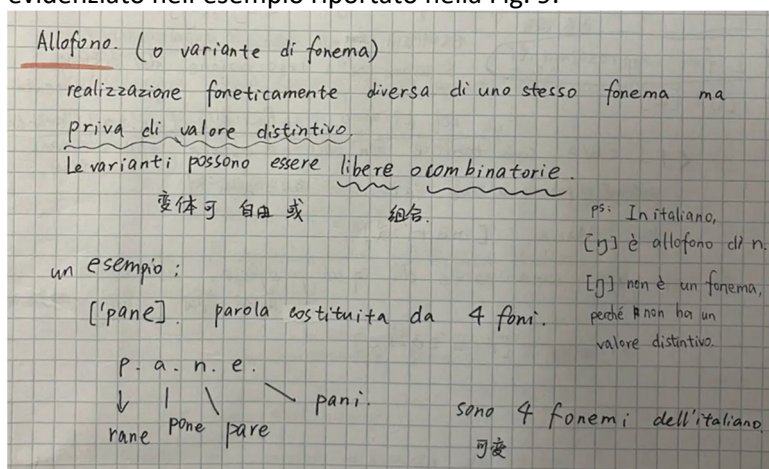 Allofono. (o variante di fonema)
realizzazione foneticamente diversa di uno stesso fonema ma
priva di valore distintivo.
Le varianti possono essere libere o combinatorie.
变体可 自由 或 组合.
ps: In italiano,
[ŋ] è allofono di n.
[ŋ] non è un fonema,
perché non ha un
valore distintivo.
un esempio:
['pane]. parola costituita da 4 foni.
p. a. n. e.
rane pone pare pani.
sono 4 fonemi dell'italiano.
可变